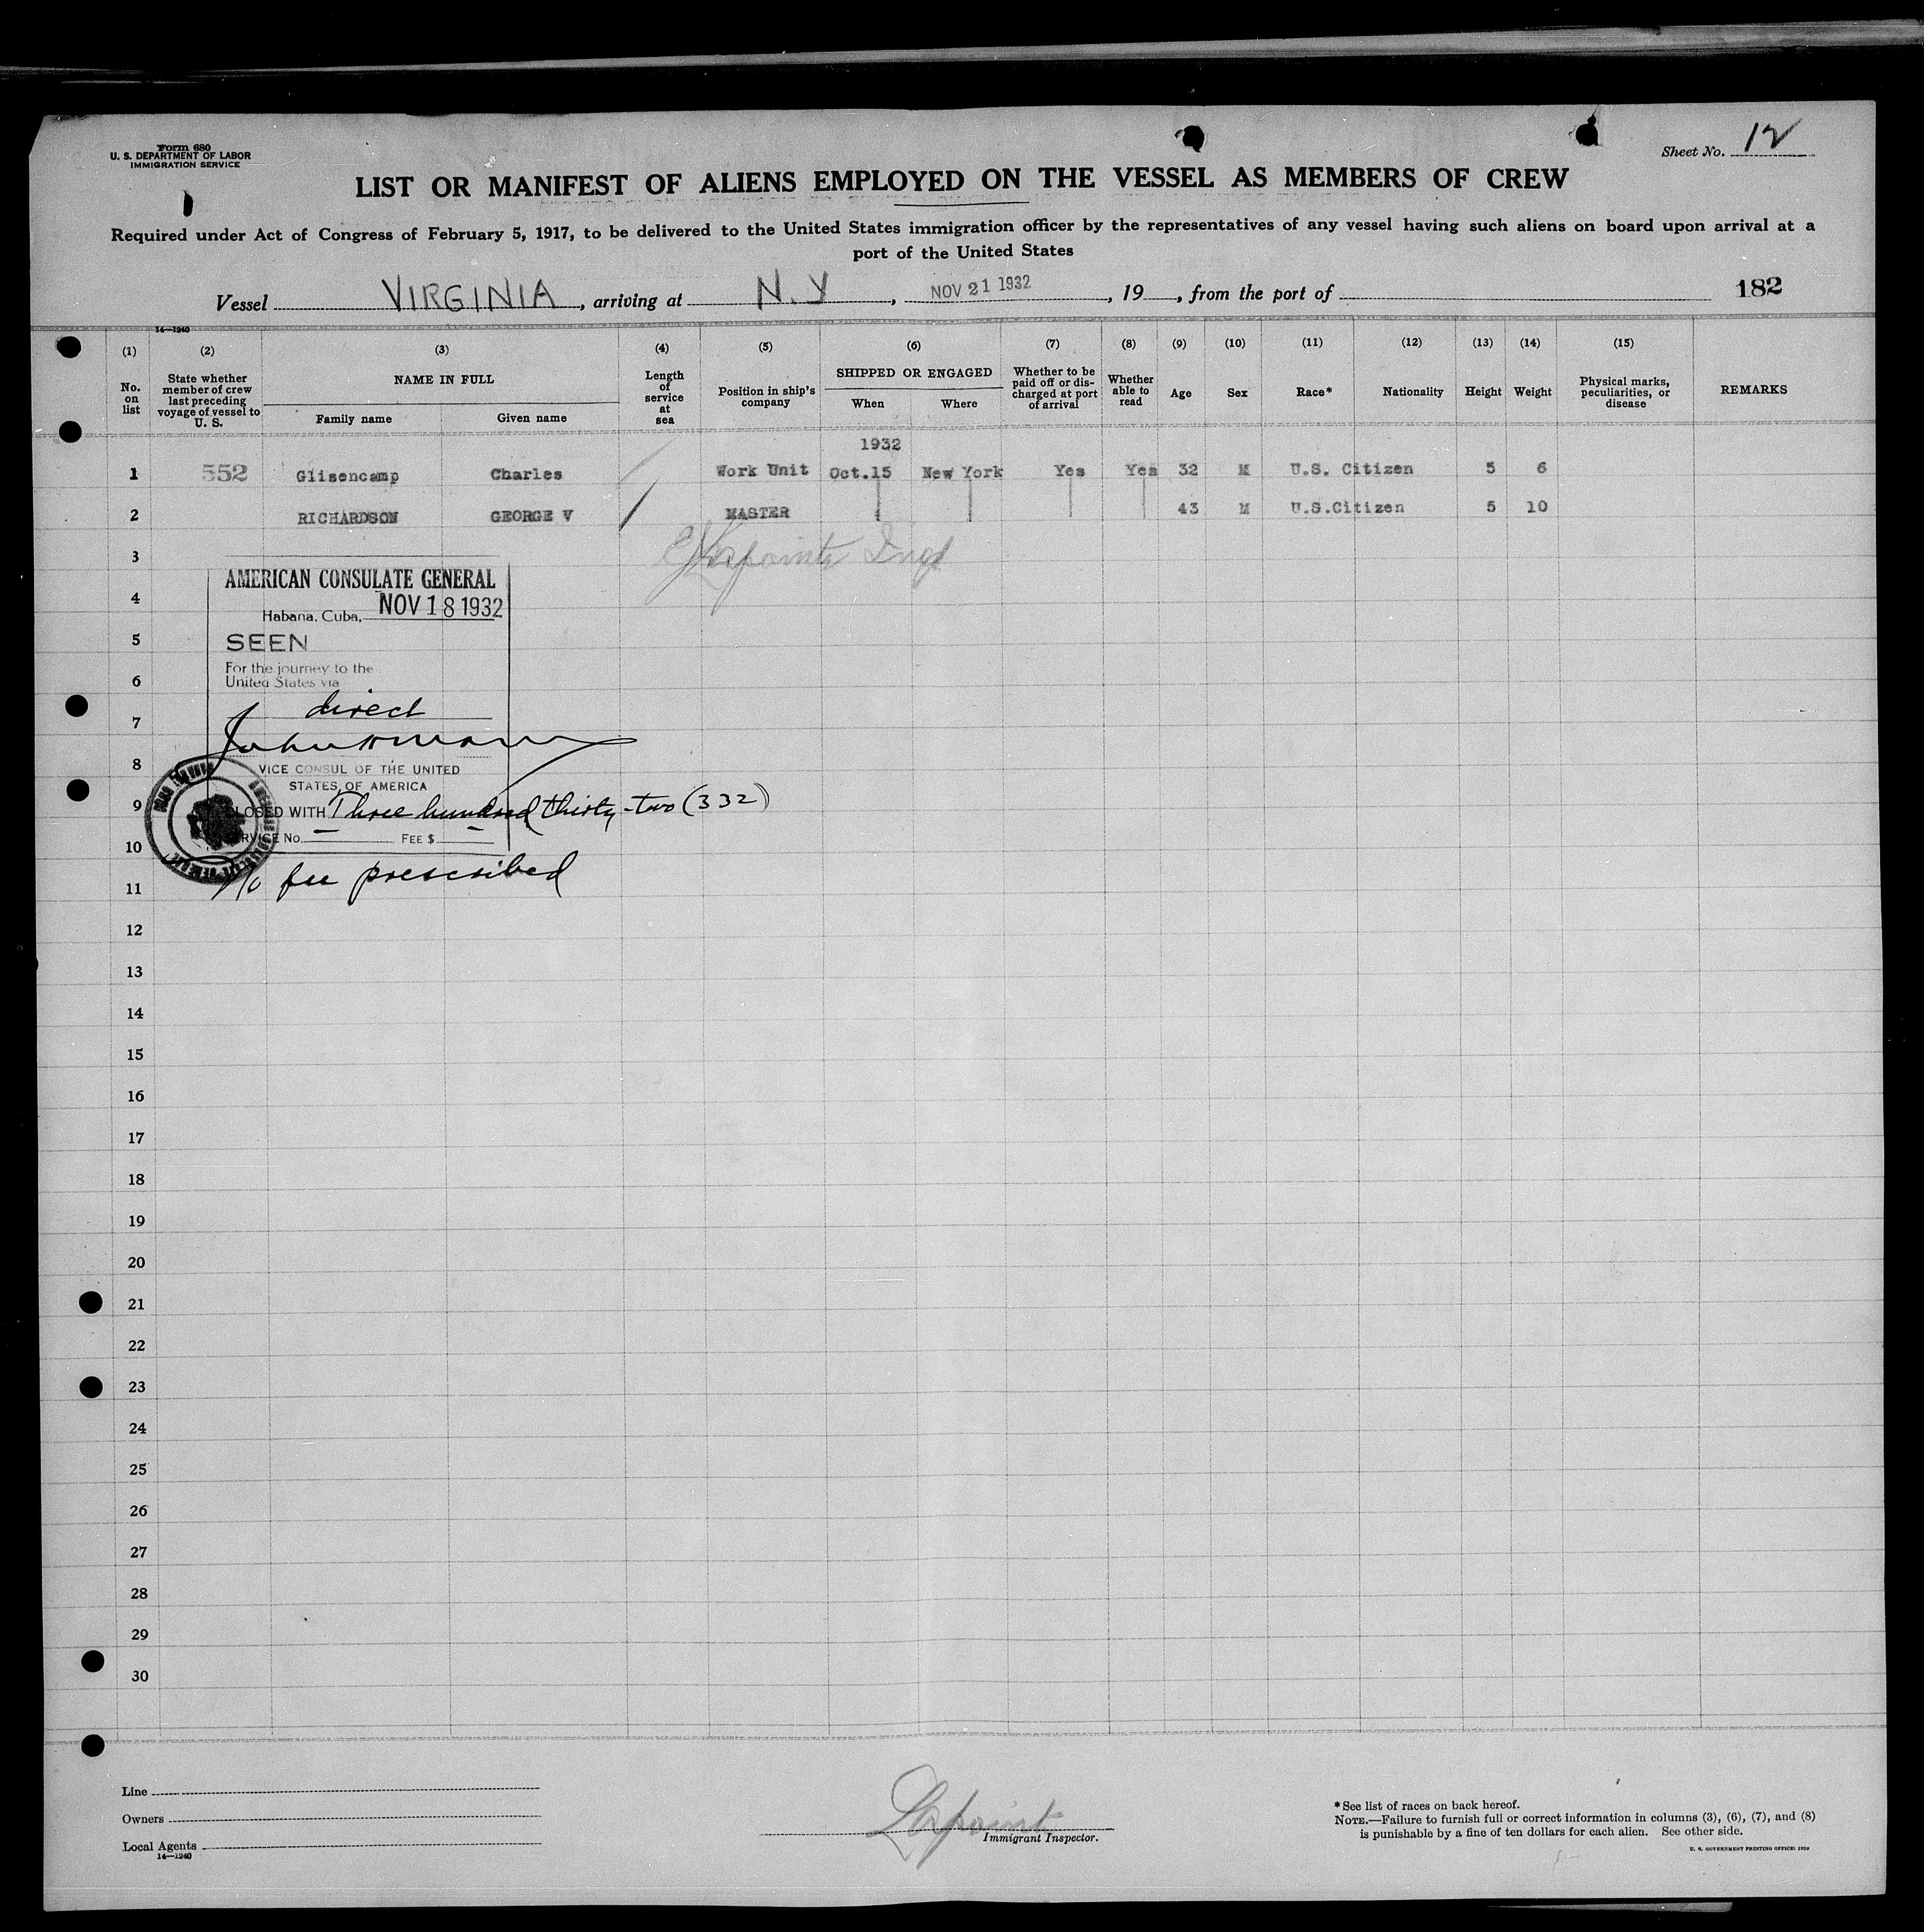 Form 680
U. S. DEPARTMENT OF LABOR
IMMIGRATION SERVICE
Sheet No. 12
LIST OR MANIFEST OF ALIENS EMPLOYED ON THE VESSEL AS MEMBERS OF CREW
Required under Act of Congress of February 5, 1917, to be delivered to the United States immigration officer by the representatives of any vessel having such aliens on board upon arrival at a
port of the United States
Vessel VIRGINIA, arriving at N.Y, NOV 21 1932, 19, from the port of 182
14—1240
(1) (2) (3) (4) (5) (6) (7) (8) (9) (10) (11) (12) (13) (14) (15)
No. on list
State whether member of crew last preceding voyage of vessel to U. S.
NAME IN FULL
Family name Given name
Length of service at sea
Position in ship's company
SHIPPED OR ENGAGED
When Where
Whether to be paid off or discharged at port of arrival
Whether able to read
Age
Sex
Race*
Nationality
Height
Weight
Physical marks, peculiarities, or disease
REMARKS
1932
1 552 Glisencamp Charles Work Unit Oct.15 New York Yes Yes 32 M U.S. Citizen 5 6
2 RICHARDSON GEORGE V MASTER 43 M U.S.Citizen 5 10
3 Lapointe Insp
AMERICAN CONSULATE GENERAL
4 Habana, Cuba, NOV 18 1932
5 SEEN
For the journey to the
6 United States via
7 direct
8 VICE CONSUL OF THE UNITED
STATES OF AMERICA
9 CLOSED WITH Three hundred thirty-two (332)
10 SERVICE No. FEE $
11 No fee prescribed
12
13
14
15
16
17
18
19
20
21
22
23
24
25
26
27
28
29
30
Line
Owners
Local Agents
14—1240
Lapointe
Immigrant Inspector.
* See list of races on back hereof.
NOTE.—Failure to furnish full or correct information in columns (3), (6), (7), and (8)
is punishable by a fine of ten dollars for each alien. See other side.
U. S. GOVERNMENT PRINTING OFFICE: 1929